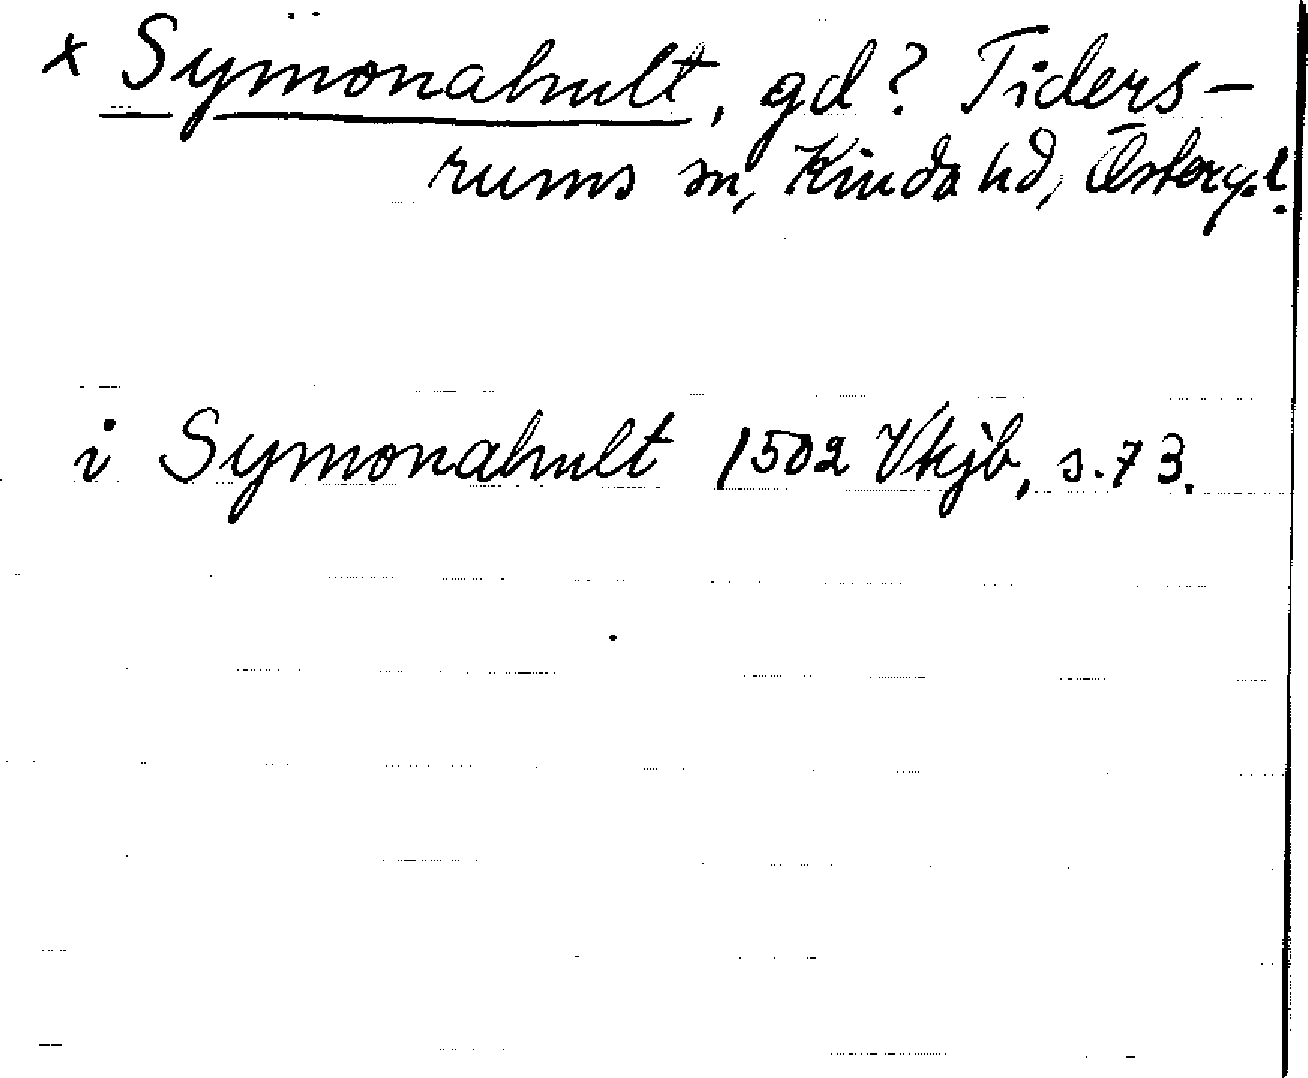 x Symonahult, gd? Tiders-
rums sn, Kinda hd, Östergl.
i Symonahult 1502 Vkjb, s. 73.